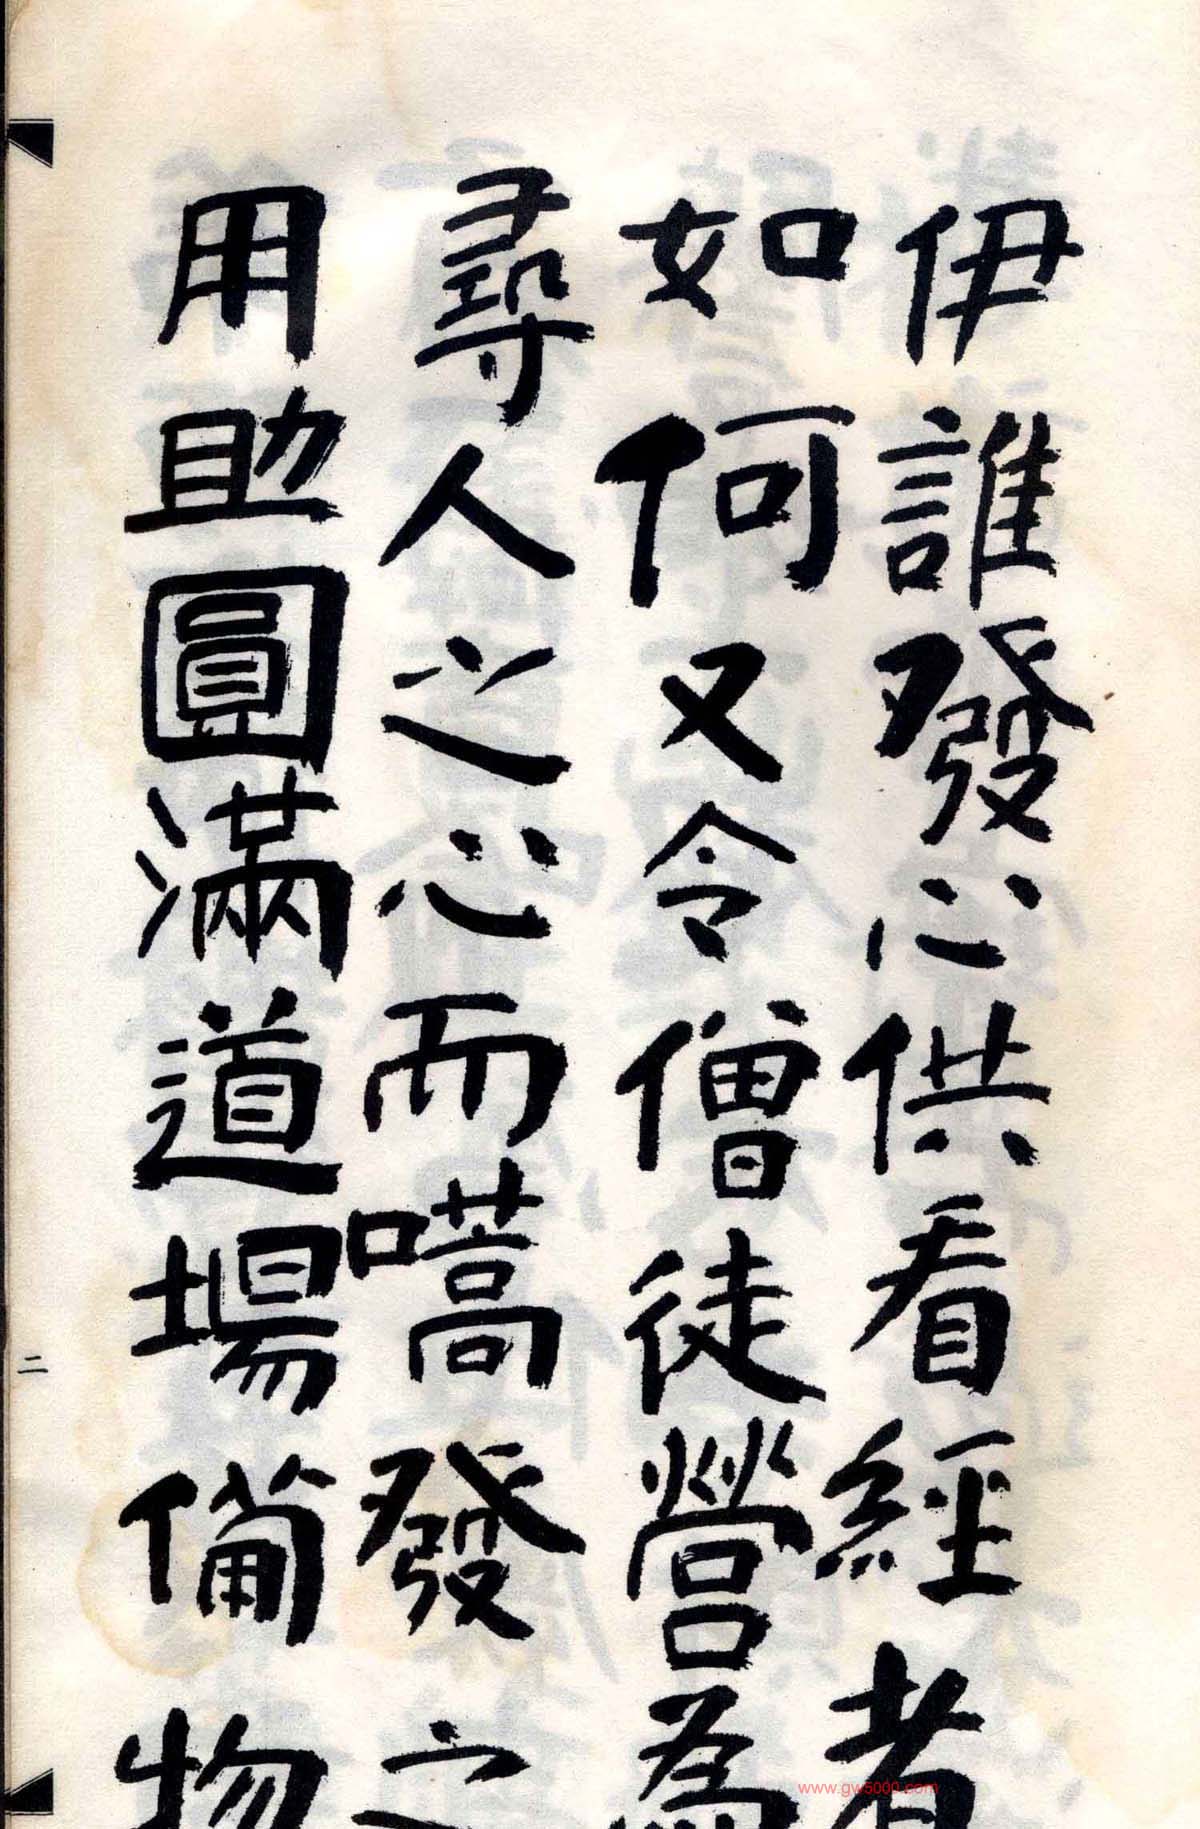 伊誰發心供看經者
如何又令僧徒營為
尋人之心而嚆發之
用助圓滿道場備物
二
www.gw5000.com